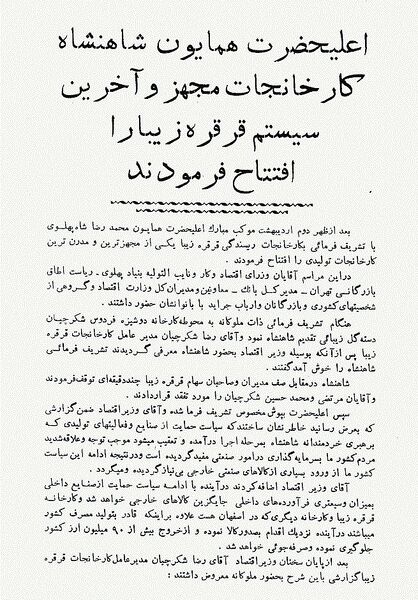 اعلیحضرت همایون شاهنشاه
کارخانجات مجهز و آخرین
سیستم قرقره زیبا را
افتتاح فرمودند
بعد از ظهر دوم اردیبهشت موکب مبارک اعلیحضرت همایون محمد رضا شاه پهلوی
با تشریف فرمائی بکارخانجات ریسندگی قرقره زیبا یکی از مجهزترین و مدرن ترین
کارخانجات تولیدی را افتتاح فرمودند .
در این مراسم آقایان وزرای اقتصاد و کار و نایب التولیه بنیاد پهلوی ـ ریاست اطاق
بازرگانی تهران ـ مدیرکل بانک ـ معاونین و مدیران کل وزارت اقتصاد و گروهی از
شخصیتهای کشوری و بازرگانان و ارباب جراید با بانوانشان حضور داشتند .
هنگام تشریف فرمائی ذات ملوکانه به محوطه کارخانه دوشیزه فردوس شکرچیان
دسته گل زیبائی تقدیم شاهنشاه نمود و آقای رضا شکرچیان مدیر عامل کارخانجات قرقره
زیبا پس از آنکه بوسیله وزیر اقتصاد بحضور شاهنشاه معرفی گردیدند تشریف فرمائی
شاهنشاه را خوش آمد گفتند .
شاهنشاه در مقابل صف مدیران و صاحبان سهام قرقره زیبا چند دقیقه ای توقف فرمودند
و آقایان مرتضی و محمد حسین شکرچیان را مورد تفقد قرار دادند .
سپس اعلیحضرت بپوش مخصوص تشریف فرما شده و آقای وزیر اقتصاد ضمن گزارشی
که بعرض رسانید خاطر نشان ساختند که سیاست حمایت از صنایع و فعالیتهای تولیدی که
برهبری خردمندانه شاهنشاه بمرحله اجرا در آمده و تعقیب میشود موجب توجه و علاقه شدید
مردم کشور ما بسرمایه گذاری در امور صنعتی مفید گردیده است و در نتیجه ادامه این سیاست
کشور ما از ورود بسیاری از کالاهای صنعتی خارجی بی نیاز گردیده و میگردد .
آقای وزیر اقتصاد اضافه کردند در آینده با ادامه سیاست حمایت از صنایع داخلی
بمیزان وسیعتری فرآورده های داخلی جایگزین کالاهای خارجی خواهد شد و کارخانه
قرقره زیبا و کارخانه دیگری که در اصفهان هست علاوه بر اینکه قادر بتولید مصرف کشور
میباشند در آینده نزدیک اقدام بصدور کالا نموده و از خروج بیش از ۹۰ میلیون ارز کشور
جلوگیری نموده و صرفه جوئی خواهد شد .
بعد از پایان سخنان وزیر اقتصاد آقای رضا شکرچیان مدیر عامل کارخانجات قرقره
زیبا گزارشی باین شرح بحضور ملوکانه معروض داشتند :